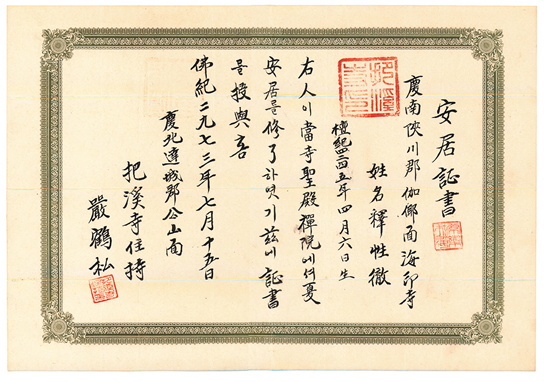 安居証書
慶南陜川郡伽倻面海印寺
姓名釋性徹
檀紀四二四五年四月六日生
右人이當寺聖殿禪院에서夏
安居를修了하엿기玆에証書
를授與홈
佛紀二九七三年七月十五日
慶北達城郡公山面
把溪寺住持
嚴鶴松